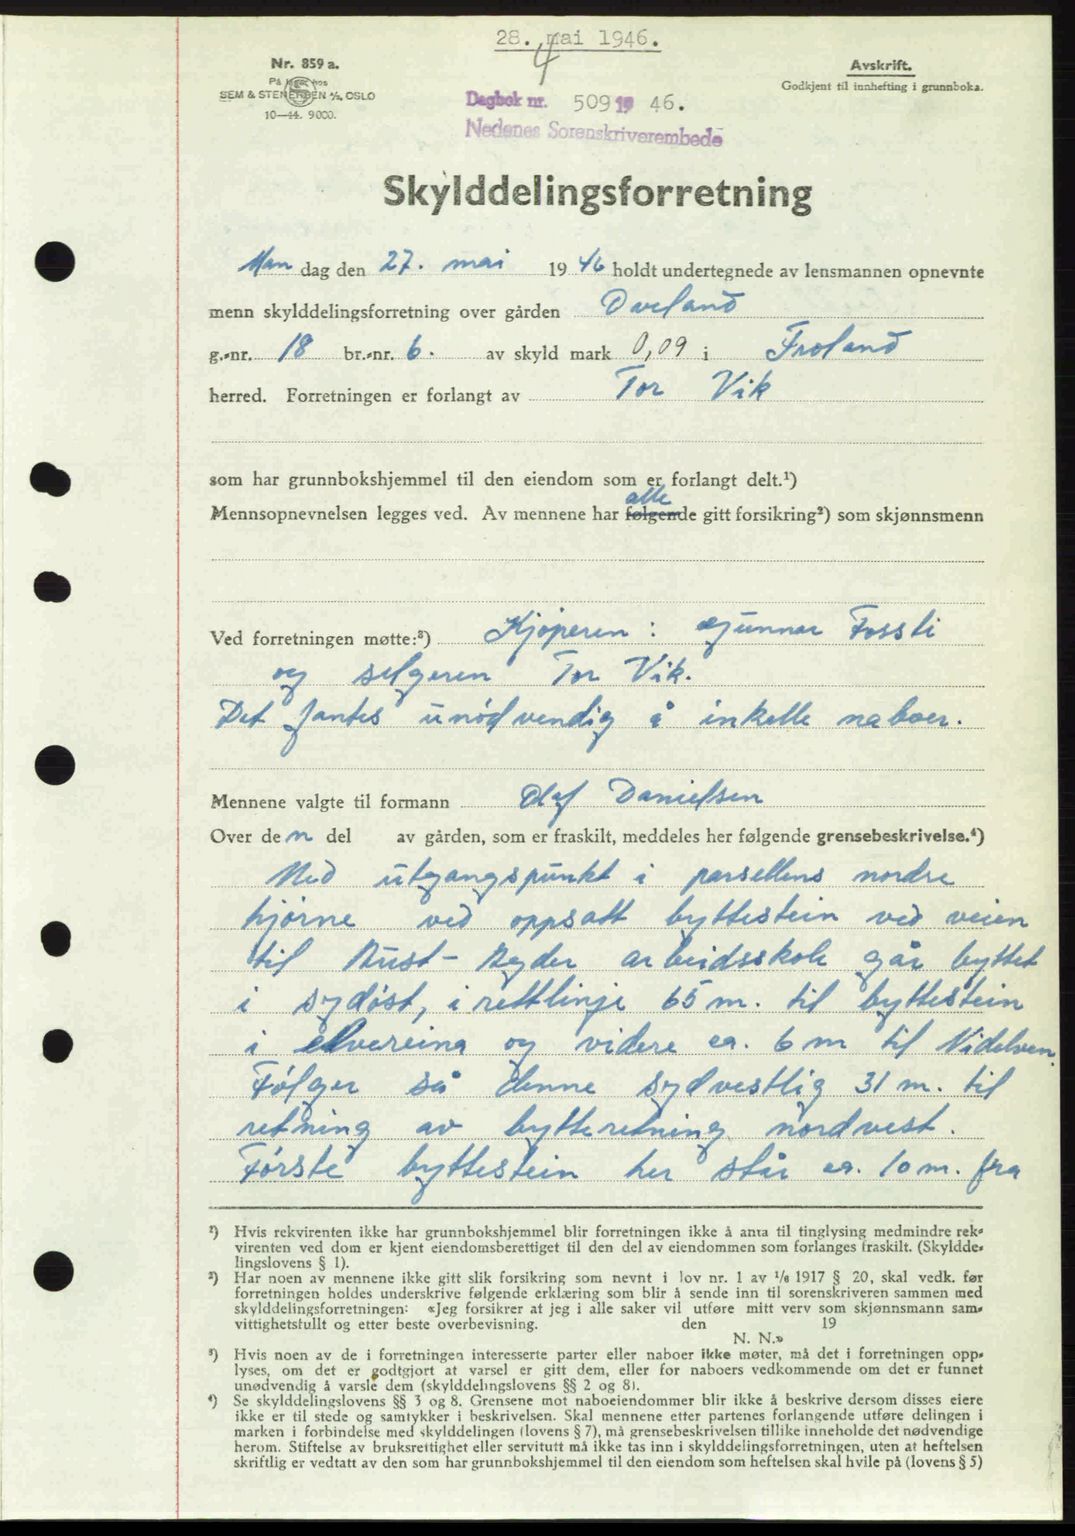 28. mai 1946.
Nr. 859 a.
På lager hos
SEM & STENERSEN A/S, OSLO
10—44. 9000.
Avskrift.
Godkjent til innhefting i grunnboka.
Dagbok nr. 509 19 46.
Nedenes Sorenskriverembede
Skylddelingsforretning
Man dag den 27. mai 19 46 holdt undertegnede av lensmannen opnevnte
menn skylddelingsforretning over gården Dveland
g.-nr. 18 br.-nr. 6. av skyld mark 0,09 i Froland
herred. Forretningen er forlangt av Tor Vik
som har grunnbokshjemmel til den eiendom som er forlangt delt.¹)
alle
Mennsopnevnelsen legges ved. Av mennene har følgende gitt forsikring²) som skjønnsmenn
Ved forretningen møtte:³) Kjøperen: Gunnar Fossli
og selgeren Tor Vik.
Det fantes unødvendig å inkalle naboer.
Mennene valgte til formann Olaf Danielsen
Over den del av gården, som er fraskilt, meddeles her følgende grensebeskrivelse.⁴)
Med utgangspunkt i parsellens nordre
hjørne ved oppsatt byttestein ved veien
til Aust-Agder arbeidsskole går byttet
i sydøst, i rettlinje 65 m. til byttestein
i elvereina og videre ca. 6 m til Nidelven.
Følger så denne sydvestlig 31 m. til
retning av bytteretning nordvest.
Første byttestein her står ca. 10 m. fra
²) Hvis rekvirenten ikke har grunnbokshjemmel blir forretningen ikke å anta til tinglysing medmindre rek-
virenten ved dom er kjent eiendomsberettiget til den del av eiendommen som forlanges fraskilt. (Skyldde-
lingslovens § 1).
²) Har noen av mennene ikke gitt slik forsikring som nevnt i lov nr. 1 av 1/6 1917 § 20, skal vedk. før
forretningen holdes underskrive følgende erklæring som blir å sende inn til sorenskriveren sammen med
skylddelingsforretningen: «Jeg forsikrer at jeg i alle saker vil utføre mitt verv som skjønnsmann sam-
vittighetsfullt og etter beste overbevisning. den 19
N. N.»
³) Hvis noen av de i forretningen interesserte parter eller naboer ikke møter, må det i forretningen opp-
lyses, om det er godtgjort at varsel er gitt dem, eller for naboers vedkommende om det er funnet
unødvendig å varsle dem (skylddelingslovens §§ 2 og 8).
⁴) Se skylddelingslovens §§ 3 og 8. Grensene mot naboeiendommer blir ikke å beskrive dersom disses eiere
ikke er til stede og samtykker i beskrivelsen. Skal mennene etter partenes forlangende utføre delingen i
marken i forbindelse med skylddelingen (lovens § 7), må grensebeskrivelsen tillike inneholde det nødvendige
herom. Stiftelse av bruksrettighet eller servitutt må ikke tas inn i skylddelingsforretningen, uten at heftelsen
skriftlig er vedtatt av den som har grunnbokshjemmel til den eiendom som heftelsen skal hvile på (lovens § 5)